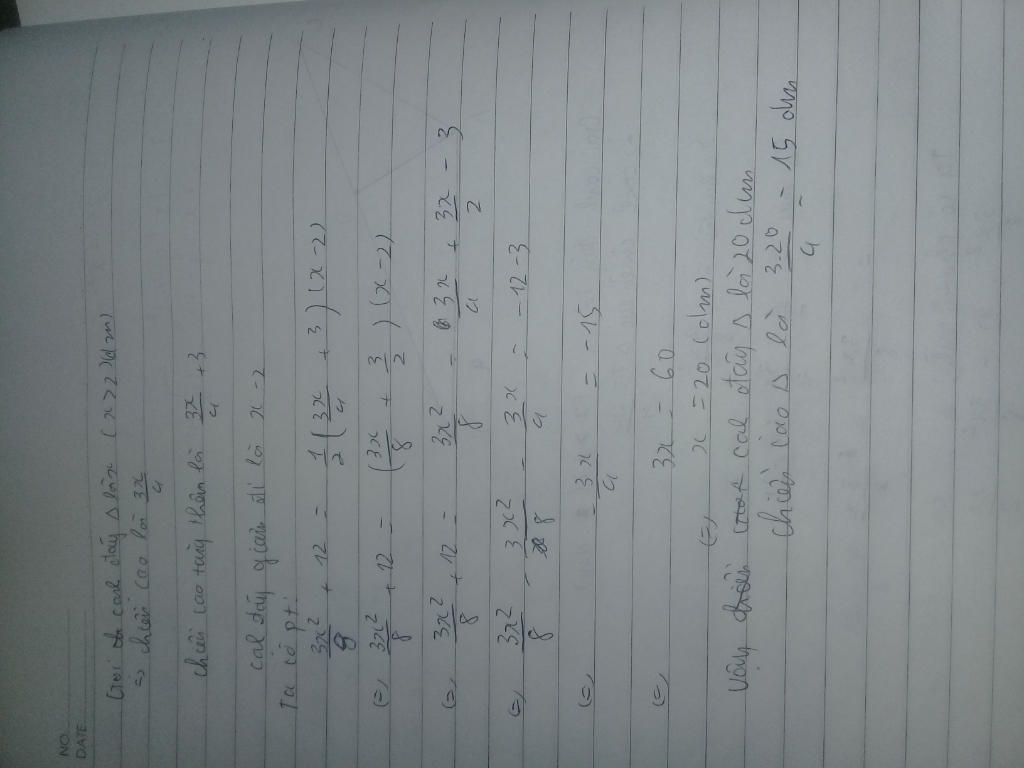 NO.
DATE
Gọi cạnh đáy Δ là x (x>2)(dm)
=> chiều cao là 3x/4
chiều cao tăng thêm là 3x/4 + 3
cạh đáy giảm đi là x-2
Ta có pt:
3x²/8 + 12 = 1/2 (3x/4 + 3) (x-2)
(=) 3x²/8 + 12 = (3x/8 + 3/2) (x-2)
(=) 3x²/8 + 12 = 3x²/8 - 3x/4 + 3x/2 - 3
(=) 3x²/8 - 3x²/8 - 3x/4 = -12-3
(=) -3x/4 = -15
(=) 3x = 60
(=) x = 20 (dm)
Vậy cah đáy Δ là 20 dm
chiều cao Δ là 3.20/4 = 15 dm